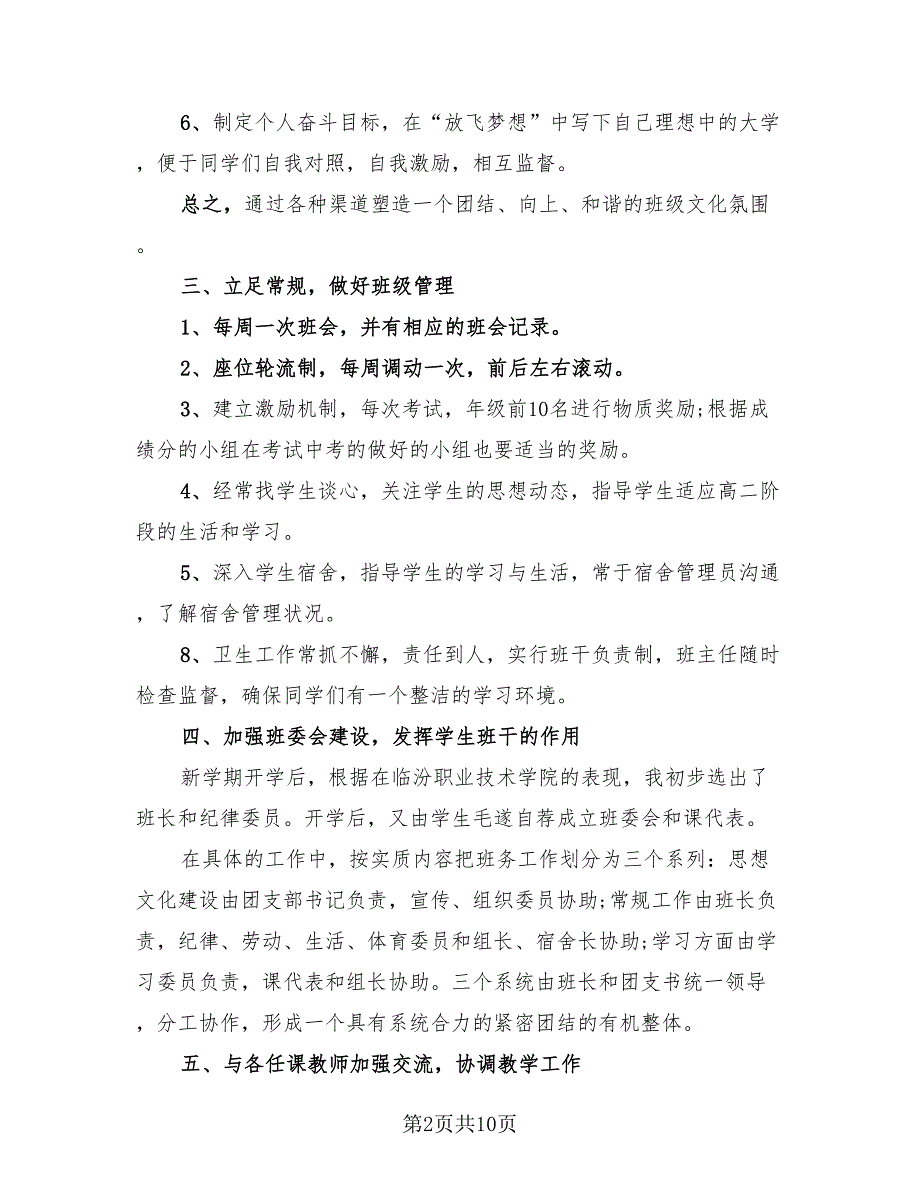 6、制定个人奋斗目标，在“放飞梦想”中写下自己理想中的大学
，便于同学们自我对照，自我激励，相互监督。
总之，通过各种渠道塑造一个团结、向上、和谐的班级文化氛围
。
三、立足常规，做好班级管理
1、每周一次班会，并有相应的班会记录。
2、座位轮流制，每周调动一次，前后左右滚动。
3、建立激励机制，每次考试，年级前10名进行物质奖励;根据成
绩分的小组在考试中考的做好的小组也要适当的奖励。
4、经常找学生谈心，关注学生的思想动态，指导学生适应高二阶
段的生活和学习。
5、深入学生宿舍，指导学生的学习与生活，常于宿舍管理员沟通
，了解宿舍管理状况。
8、卫生工作常抓不懈，责任到人，实行班干负责制，班主任随时
检查监督，确保同学们有一个整洁的学习环境。
四、加强班委会建设，发挥学生班干的作用
新学期开学后，根据在临汾职业技术学院的表现，我初步选出了
班长和纪律委员。开学后，又由学生毛遂自荐成立班委会和课代表。
在具体的工作中，按实质内容把班务工作划分为三个系列：思想
文化建设由团支部书记负责，宣传、组织委员协助;常规工作由班长负
责，纪律、劳动、生活、体育委员和组长、宿舍长协助;学习方面由学
习委员负责，课代表和组长协助。三个系统由班长和团支书统一领导
，分工协作，形成一个具有系统合力的紧密团结的有机整体。
五、与各任课教师加强交流，协调教学工作
第2页共10页